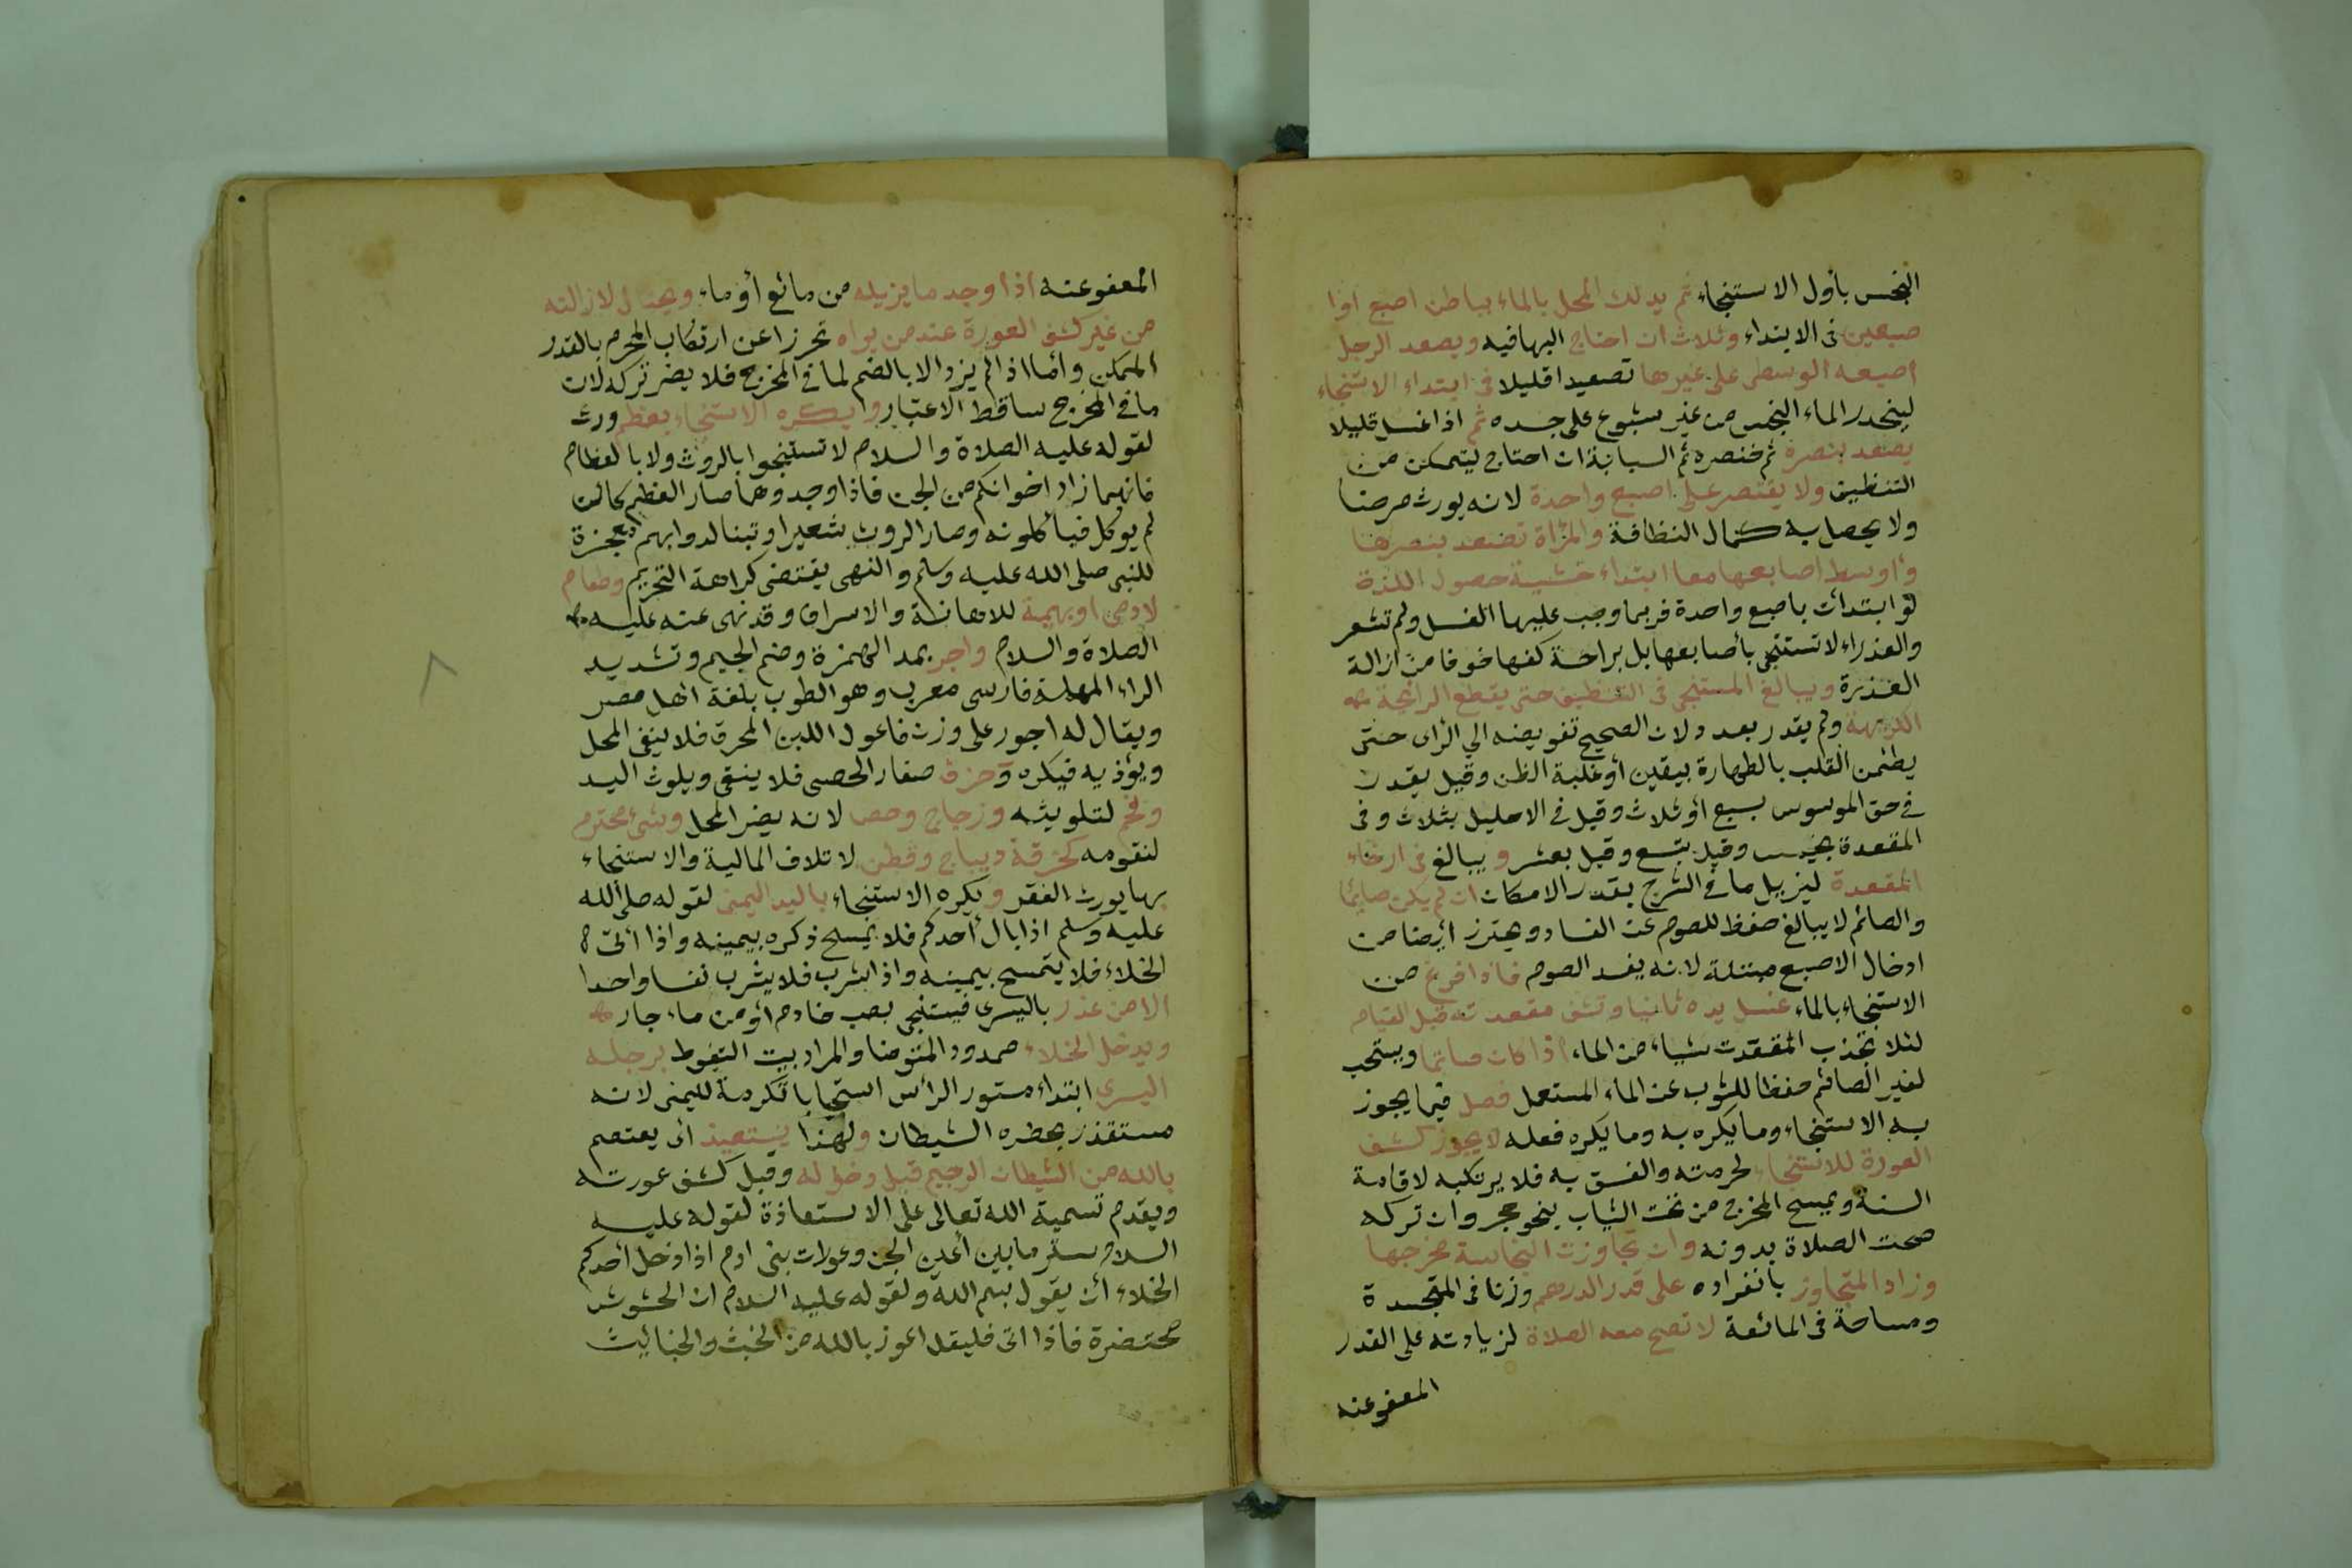 النجس بأول الاستنجاء ثم يدلك المحل بالماء بباطن اصبع اوا
صبعين فى الابتداء وثلاث ان احتاج اليها فيه ويصعد الرجل
اصبعه الوسطى على غيرها تصعيدا قليلا فى ابتداء الاستنجاء
لينحدر الماء النجس من غير شيوع على جسده ثم اذا غسل قليلا
يصعد بنصره ثم خنصره ثم السبابة ان احتاج ليتمكن من
التنظيف ولا يقتصر على اصبع واحدة لانه يورث مرضا
ولا يحصل به كمال النظافة والمرأة تصعد بنصرها
وأوسط اصابعها معا ابتداء خشية حصول اللذة
لو ابتدأت باصبع واحدة فربما وجب عليها الغسل ولم تشعر
والعذراء لا تستنجى بأصابعها بل براحة كفها خوفا من ازالة
العذرة ويبالغ المستنجى فى التنظيف حتى يقطع الرائحة
الكريهة ولم يقدر بعدد لان الصحيح تفويضه الي الرأى حتى
يطئمن القلب بالطهارة بيقين أو غلبة الظن وقيل يقدر
في حق الموسوس بسبع أو ثلاث وقيل فى الاحليل بثلاث وفى
المقعدة بخمس وقيل بتسع وقيل بعشر ويبالغ فى ارخاء
المقعدة ليزيل ما فى الشرج بقدر الامكان ان لم يكن صائما
والصائم لا يبالغ حفظ للصوم عن الفساد ويحترز أيضا من
ادخال الاصبع مبتلة لانه يفسد الصوم فاذا فرغ من
الاستنجاء بالماء غسل يده ثانيا ونشف مقعدته قبل القيام
لئلا تجذب المقعدت شياء من الماء اذا كان صائما ويستحب
لغير الصائم حفظا للثوب عن الماء المستعمل فصل فيما يجوز
به الاستنجاء وما يكره به وما يكره فعله لا يجوز كشف
العورة للاستنجاء لحرمته والفسق به فلا يرتكبه لاقامة
السنة ويمسح المخرج من تحت الثياب بنحو حجر وان تركه
صحت الصلاة بدونه وان تجاوزت النجاسة مخرجها
وزاد المتجاوز بانفراده على قدر الدرهم وزنا فى المتجسدة
ومساحة فى المائعة لا تصح معه الصلاة لزيادته على القدر
المعفو عنه
المعفو عنه اذا وجد ما يزيله من مائع أو ماء ويحتال لازالته
من غير كشف العورة عند من يراه تحرزا عن ارتكاب المحرم بالقدر
الممكن وأما اذا لم يزد الا بالضم لما فى المخرج فلا يضر تركه لان
ما فى المخرج ساقط الاعتبار ويكره الاستنجاء بعظم وروث
لقوله عليه الصلاة والسلام لا تستنجوا بالروث ولا بالعظام
فانهما زاد اخوانكم من الجن فاذا وجدوهما صار العظم كان
لم يوكل فيأكلونه وصار الروث شعيرا وتبنا لدوابهم معجزة
للنبى صلى الله عليه وسلم والنهى يقتضى كراهة التحريم وطعام
لادمى او بهيمة للاهانة والاسراف وقد نهى عنه عليه
الصلاة والسلام واجر بمد الهمزة وضم الجيم وتشديد
الراء المهملة فارسى معرب وهو الطوب بلغة اهل مصر
ويقال له اجور على وزن فاعول اللبن المحرق فلا ينقى المحل
ويؤذيه فيكره وخزف صغار الحصى فلا ينقى ويلوث اليد
وفحم لتلويثه وزجاج وجص لانه يضر المحل وشئ محترم
لتقومه كخرقة ديباج وقطن لاتلاف المالية والاستنجاء
بها يورث الفقر ويكره الاستنجاء باليد اليمنى لقوله صلى الله
عليه وسلم اذا بال أحدكم فلا يمسح ذكره بيمينه واذا أتى
الخلاء فلا يتمسح بيمينه واذا شرب فلا يشرب نفسا واحدا
الا من عذر باليسرى فيستنجى بصب خادم أو من ماء جار
ويدخل الخلاء ممدود المتوضا والمراد بيت التغوط برجله
اليسرى ابتداء مستور الرأس استحبابا تكرمة لليمنى لانه
مستقذر يحضره الشيطان ولهذا يستعيذ أى يعتصم
بالله من الشيطان الرجيم قبل دخوله وقبل كشف عورته
ويقدم تسمية الله تعالى على الاستعاذة لقوله عليه
السلام ستر ما بين أعين الجن وعورات بنى ادم اذا دخل أحدكم
الخلاء أن يقول بسم الله ولقوله عليه السلام ان الحشوش
محتضرة فاذا اتى فليقل اعوذ بالله من الخبث والخبائث